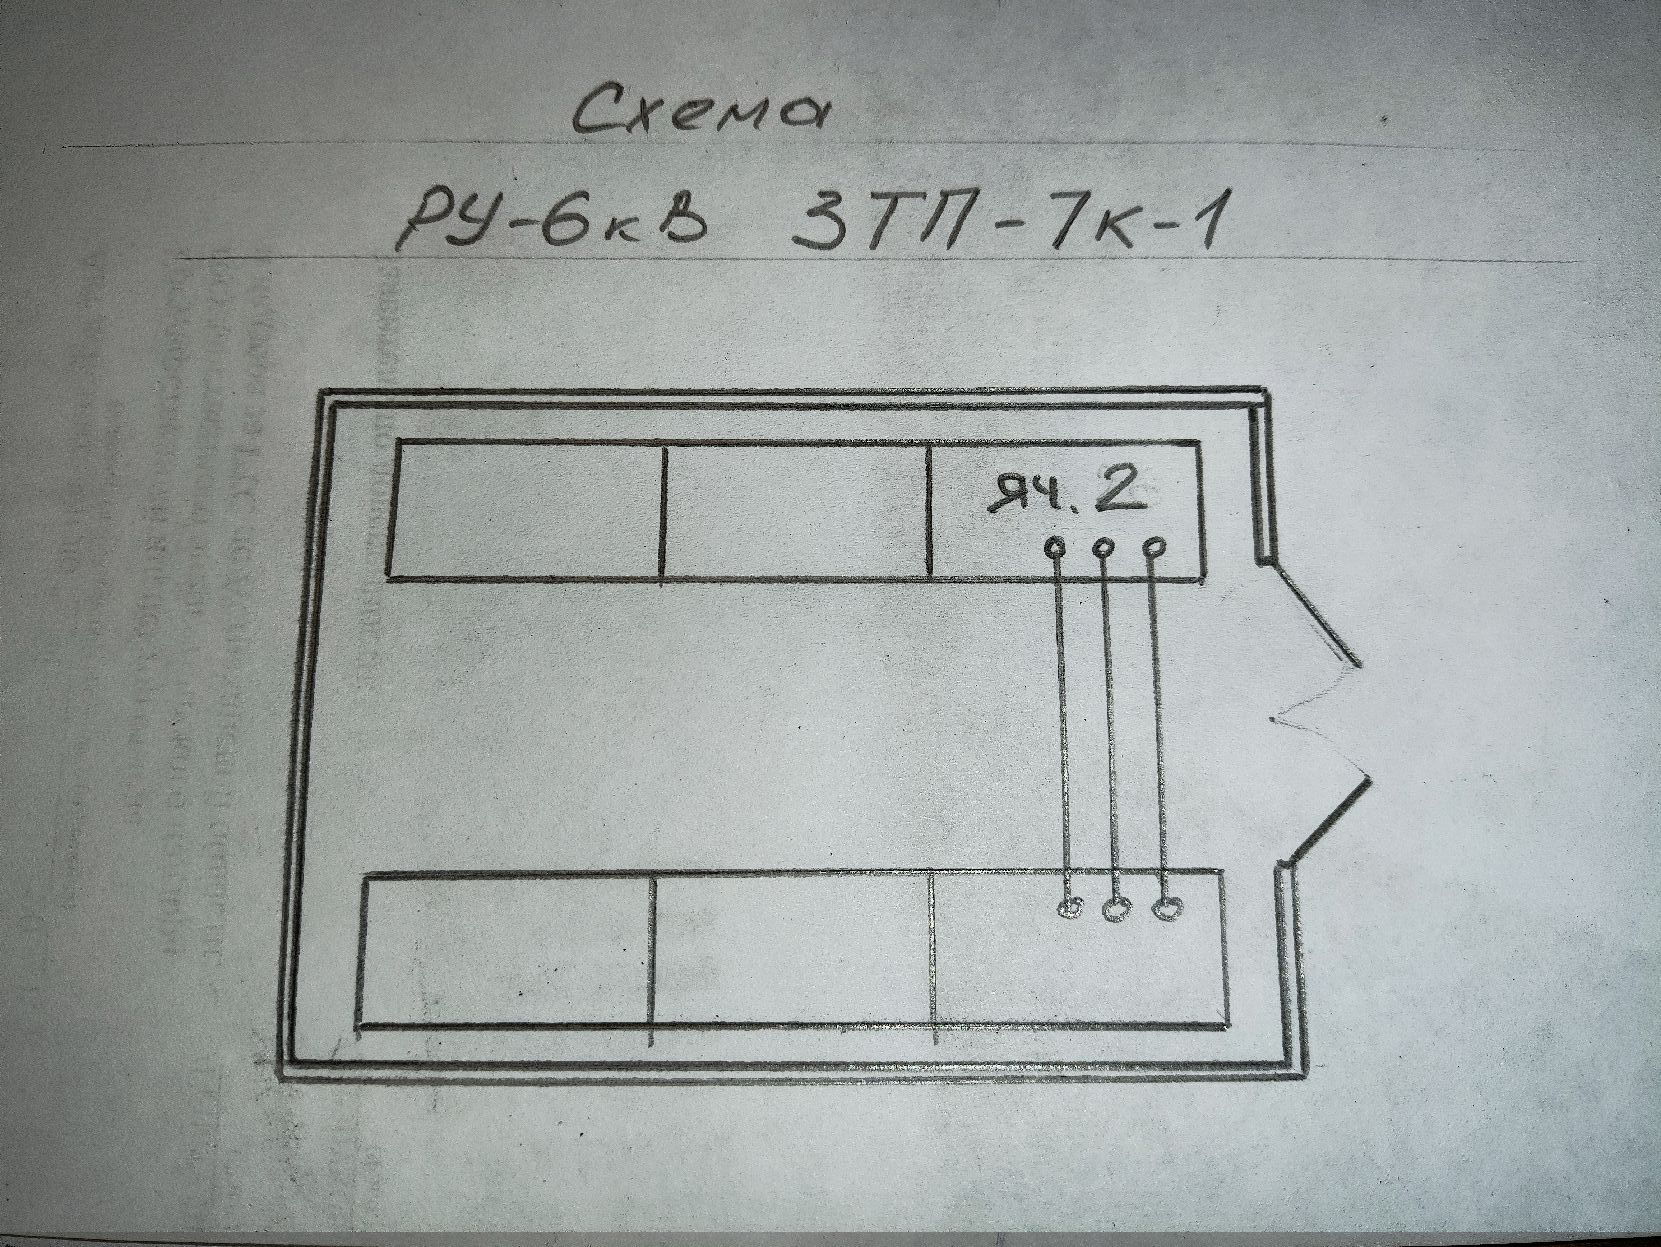 Схема
РУ-6кВ ЗТП-7к-1
яч. 2